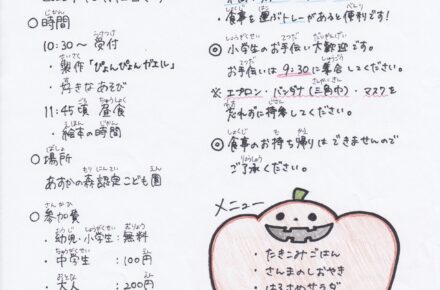 ○時間
10:30～ 受付
・製作「ぴょんぴょんガエル」
・好きなあそび
11:45頃 昼食
・絵本の時間
○場所
あすかの森認定こども園
○参加費
・幼児・小学生:無料
・中学生 :100円
・大人 :200円
・食事を運ぶトレーがあると便利です!
◎小学生のお手伝い大歓迎です。
お手伝いは9:30に集合してください。
※エプロン・バンダナ(三角巾)・マスクを
忘れずに持参してください。
◎食事のお持ち帰りはできませんので
ご了承ください。
メニュー
・たきこみごはん
・さんまのしおやき
・はるさめサラダ